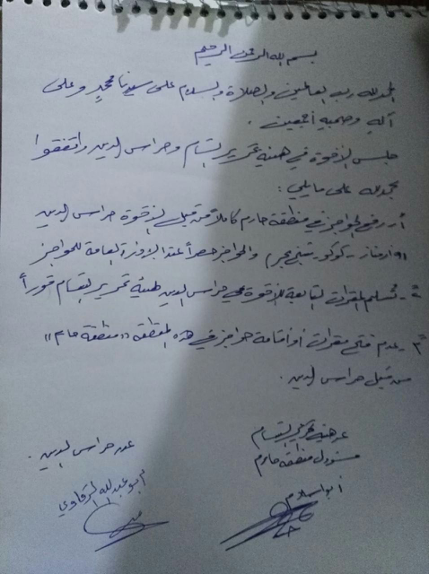 بسم الله الرحمن الرحيم
الحمد لله رب العالمين والصلاة والسلام على سيدنا محمد وعلى
آله وصحبه أجمعين .
جلس الإخوة في هيئة تحرير الشام وحراس الدين واتفقوا
على ما يلي :
1- رفع الحواجز في منطقة حارم كاملاً من قبل الإخوة حراس الدين
(( أرمناز - كوكو - شيخ بحر )) والحواجز حصراً عند الإدارة العامة للحواجز
2- تسليم المقرات التابعة للإخوة في حراس الدين لهيئة تحرير الشام فوراً
3- عدم فتح مقرات أو إقامة حواجز في هذه المنطقة (( منطقة حارم ))
من قبل حراس الدين .
عن هيئة تحرير الشام
مسؤول منطقة حارم
عن حراس الدين .
أبو عبدالله